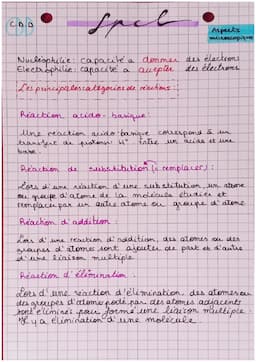 CDD
Spcl
Aspects
microscopique
Nucléophilie: capacité a donner des électrons
Electrophilie: capacité a accepter des électrons
Les principales catégories de réactions:
Réaction acido-basique:
Une réaction acido-basique correspond à un
transfert de protons H⁺ entre un acide et une
base.
Réaction de substitution (= remplacer):
Lors d'une réaction d'une substitution un atome
ou groupe d'atome de la molécule étudiée est
remplacé par un autre atome ou groupe d'atome
Réaction d'addition:
Lors d'une réaction d'addition, des atomes ou des
groupes d'atomes sont ajoutés de part et d'autre
d'une liaison multiple
Réaction d'élimination.
Lors d'une réaction d'élimination, des atomes ou
des groupes d'atomes porté par des atomes adjacents
sont éliminés pour former une liaison multiple.
Il y a élimination d'une molécule.